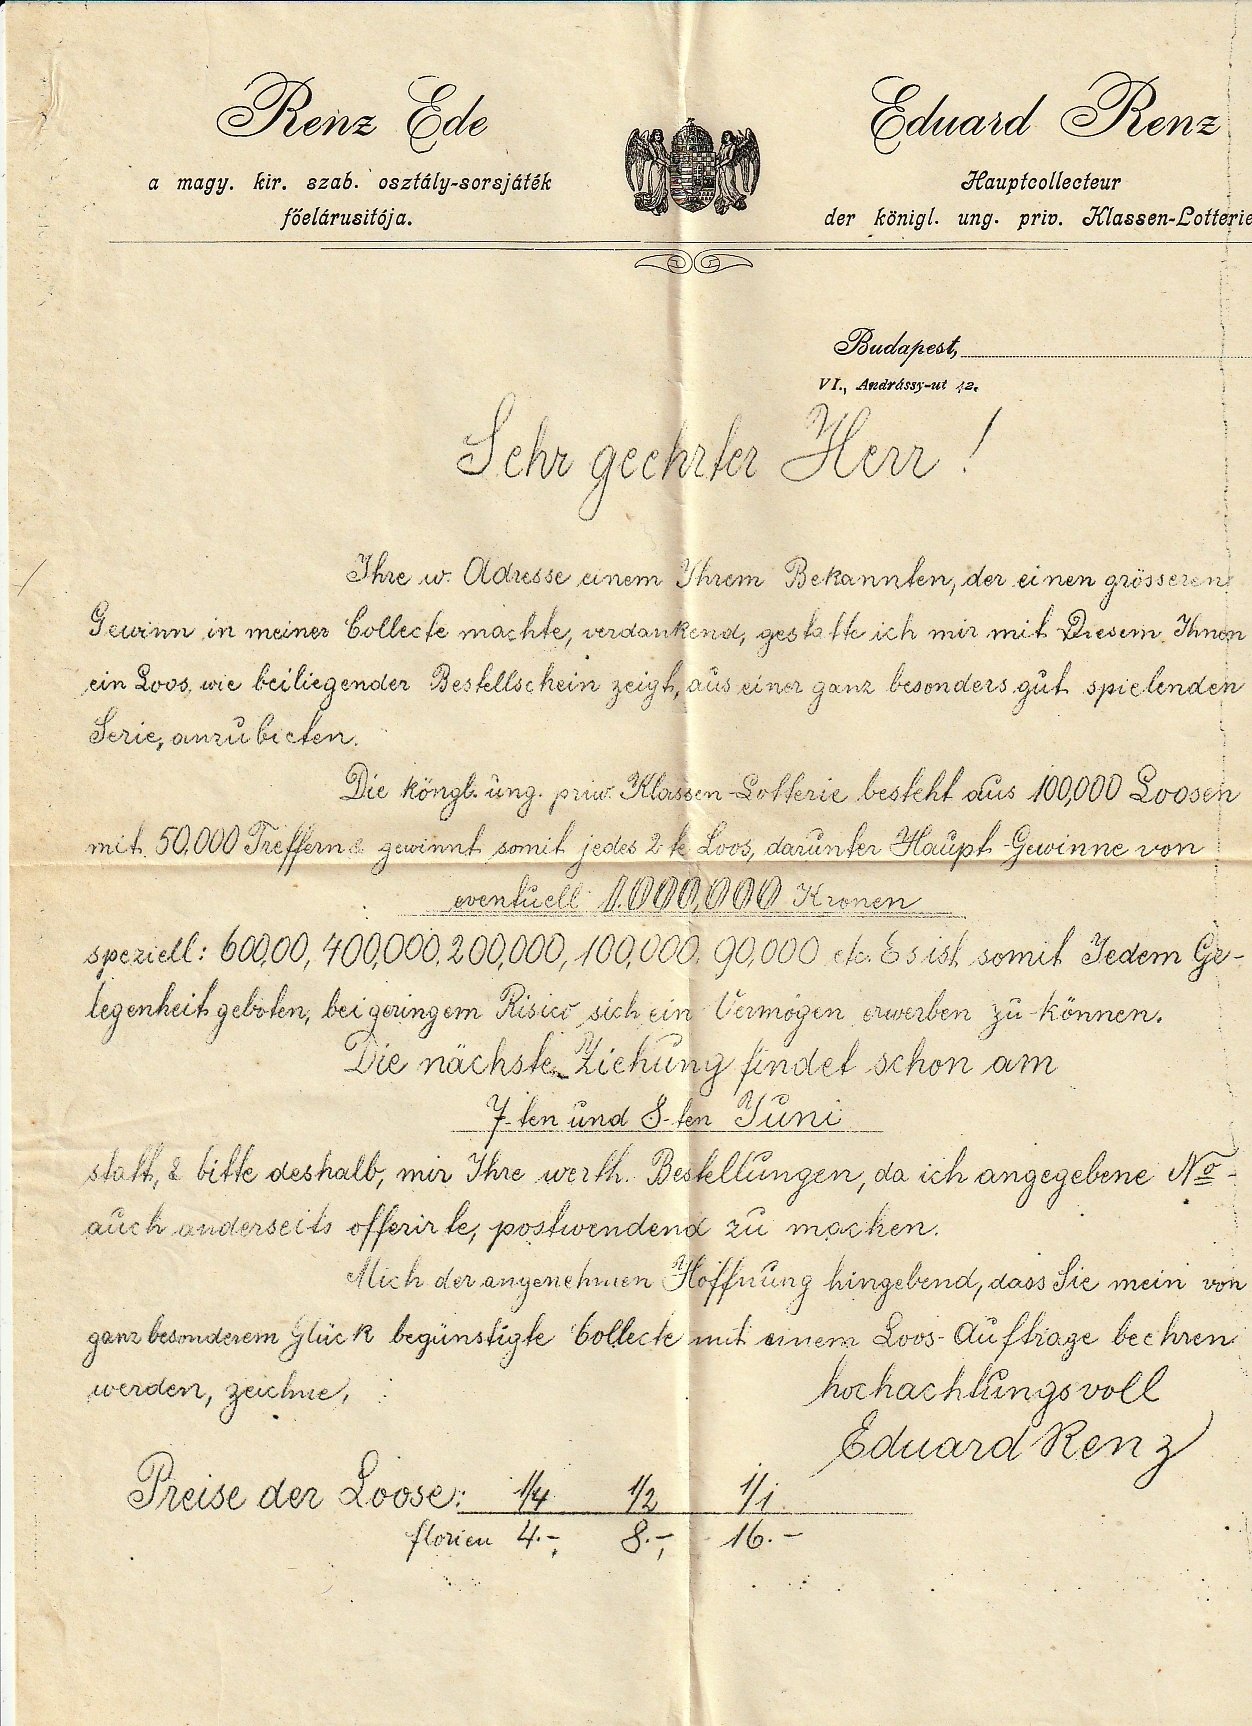 Renz Ede
a magy. kir. szab. osztály-sorsjáték
főelárusitója.
Eduard Renz
Hauptcollecteur
der königl. ung. priv. Klassen-Lotterie
Budapest,
VI., Andrássy-ut 12.
Sehr geehrter Herr!
Ihre w. Adresse einem Ihrem Bekannten, der einen grösseren
Gewinn in meiner Collecte machte, verdankend, gestatte ich mir mit Diesem Ihnen
ein Loos, wie beiliegender Bestellschein zeigt, aus einer ganz besonders gut spielenden
Serie, anzubieten.
Die köngl. ung. priv. Klassen-Lotterie besteht aus 100,000 Loosen
mit 50,000 Treffern & gewinnt somit jedes 2te Loos, darunter Haupt-Gewinne von
eventuell 1.000,000 Kronen
speziell: 600,00, 400,000, 200,000, 100,000, 90,000 etc. Es ist somit Jedem Ge-
legenheit geboten, bei geringem Risico sich ein Vermögen erwerben zu können.
Die nächste Ziehung findet schon am
7-ten und 8-ten Juni
statt, & bitte deshalb, mir Ihre werth. Bestellungen, da ich angegebene No
auch anderseits offerirte, postwendend zu machen.
Mich der angenehmen Hoffnung hingebend, dass Sie mein von
ganz besonderem Glück begünstigte Collecte mit einem Loos-Auftrage beehren
werden, zeichne,
hochachtungsvoll
Eduard Renz
Preise der Loose: 1/4 1/2 1/1
florien 4.- 8.-, 16.-